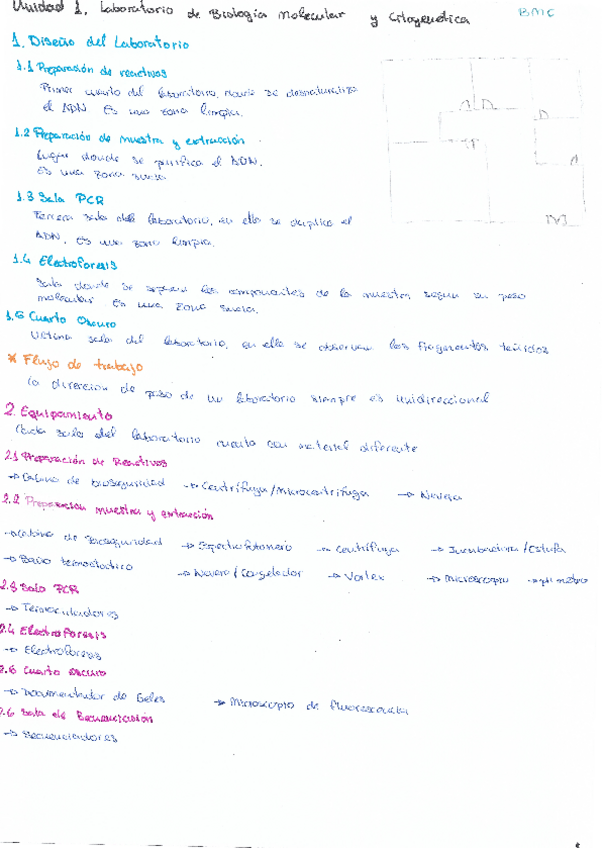 Unidad 1. Laboratorio de Biología Molecular y Citogenética
BMC
1. Diseño del Laboratorio
1.1 Preparación de reactivos
Primer cuarto del laboratorio, donde se desnaturaliza
el ADN. Es una zona limpia.
1.2 Preparación de muestra y extracción
Lugar donde se purifica el ADN.
Es una zona sucia
1.3 Sala PCR
Tercera sala del laboratorio, en ella se duplica el
ADN, es una zona limpia.
1.4 Electroforesis
Sala donde se separan los componentes de la muestra según su peso
molecular. Es una zona sucia.
1.5 Cuarto Oscuro
Última sala del laboratorio, en ella se observan los fragmentos teñidos
* Flujo de trabajo
La dirección de paso de un laboratorio siempre es unidireccional
2. Equipamiento
Cada sala del laboratorio cuenta con material diferente
2.1 Preparación de Reactivos
→ Cabina de bioseguridad → Centrífuga/Microcentrífuga → Nevera
2.2 Preparación muestra y extracción
→ Cabina de Bioseguridad → Espectrofotómetro → Centrífuga → Incubadora/Estufa
→ Baño termostático → Nevera/Congelador → Vortex → Microscopio → pH metro
2.3 Sala PCR
→ Termocicladores
2.4 Electroforesis
→ Electroforesis
2.5 Cuarto oscuro
→ Documentador de Geles → Microscopio de fluorescencia
2.6 Sala de Secuenciación
→ Secuenciadores